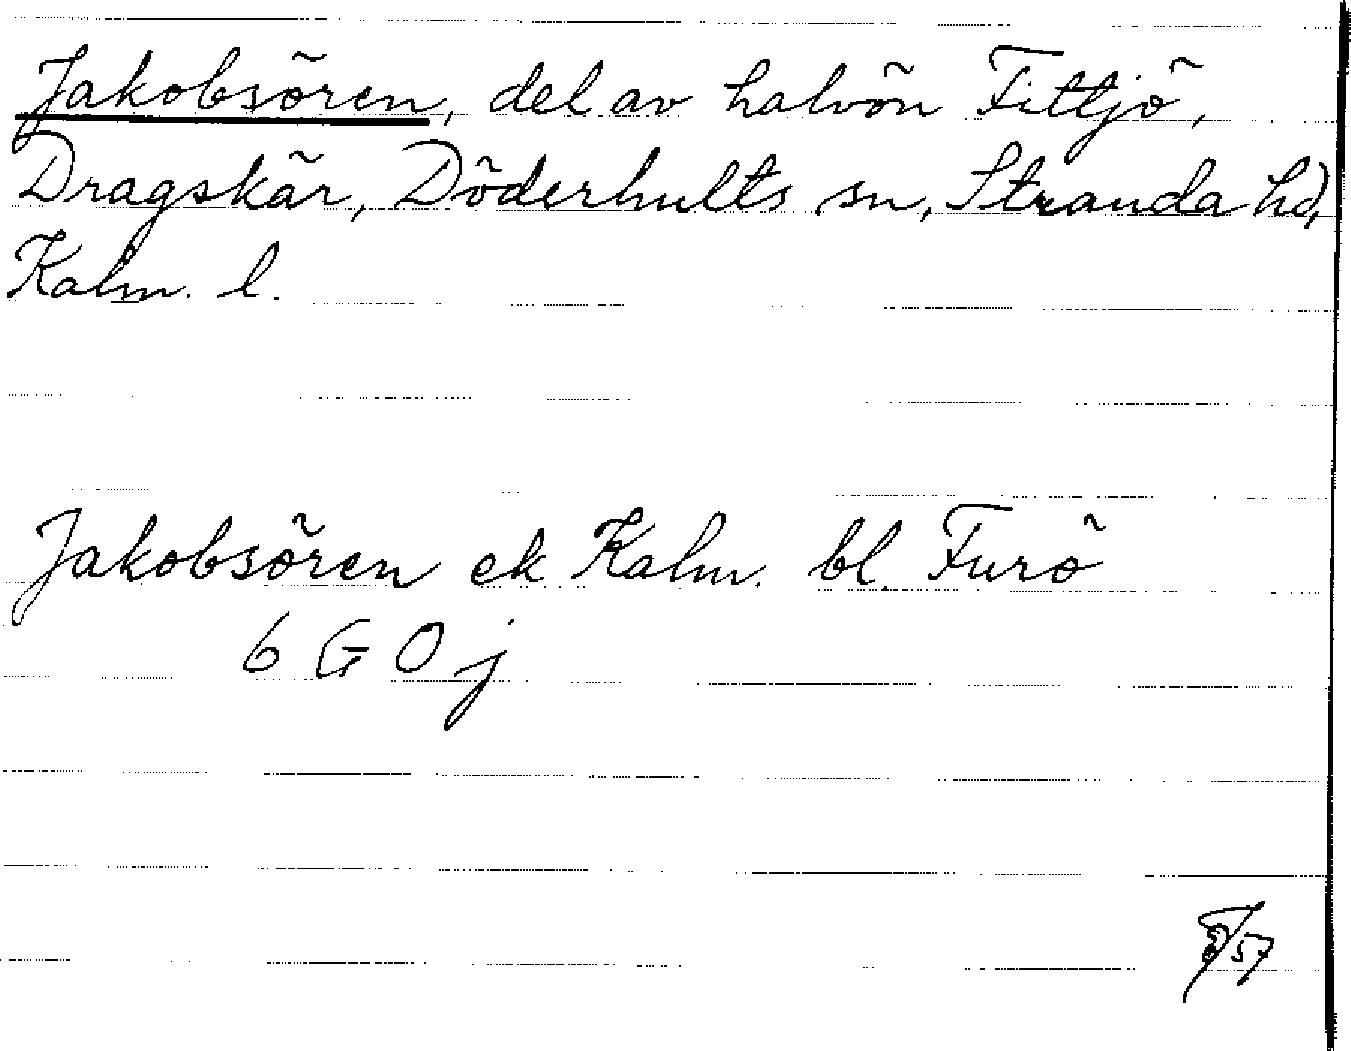 Jakobsören, del av halvön Fittjö,
Dragskär, Döderhults sn, Stranda hd,
Kalm. l.
Jakobsören ek Kalm. bl. Furö
6 G O j